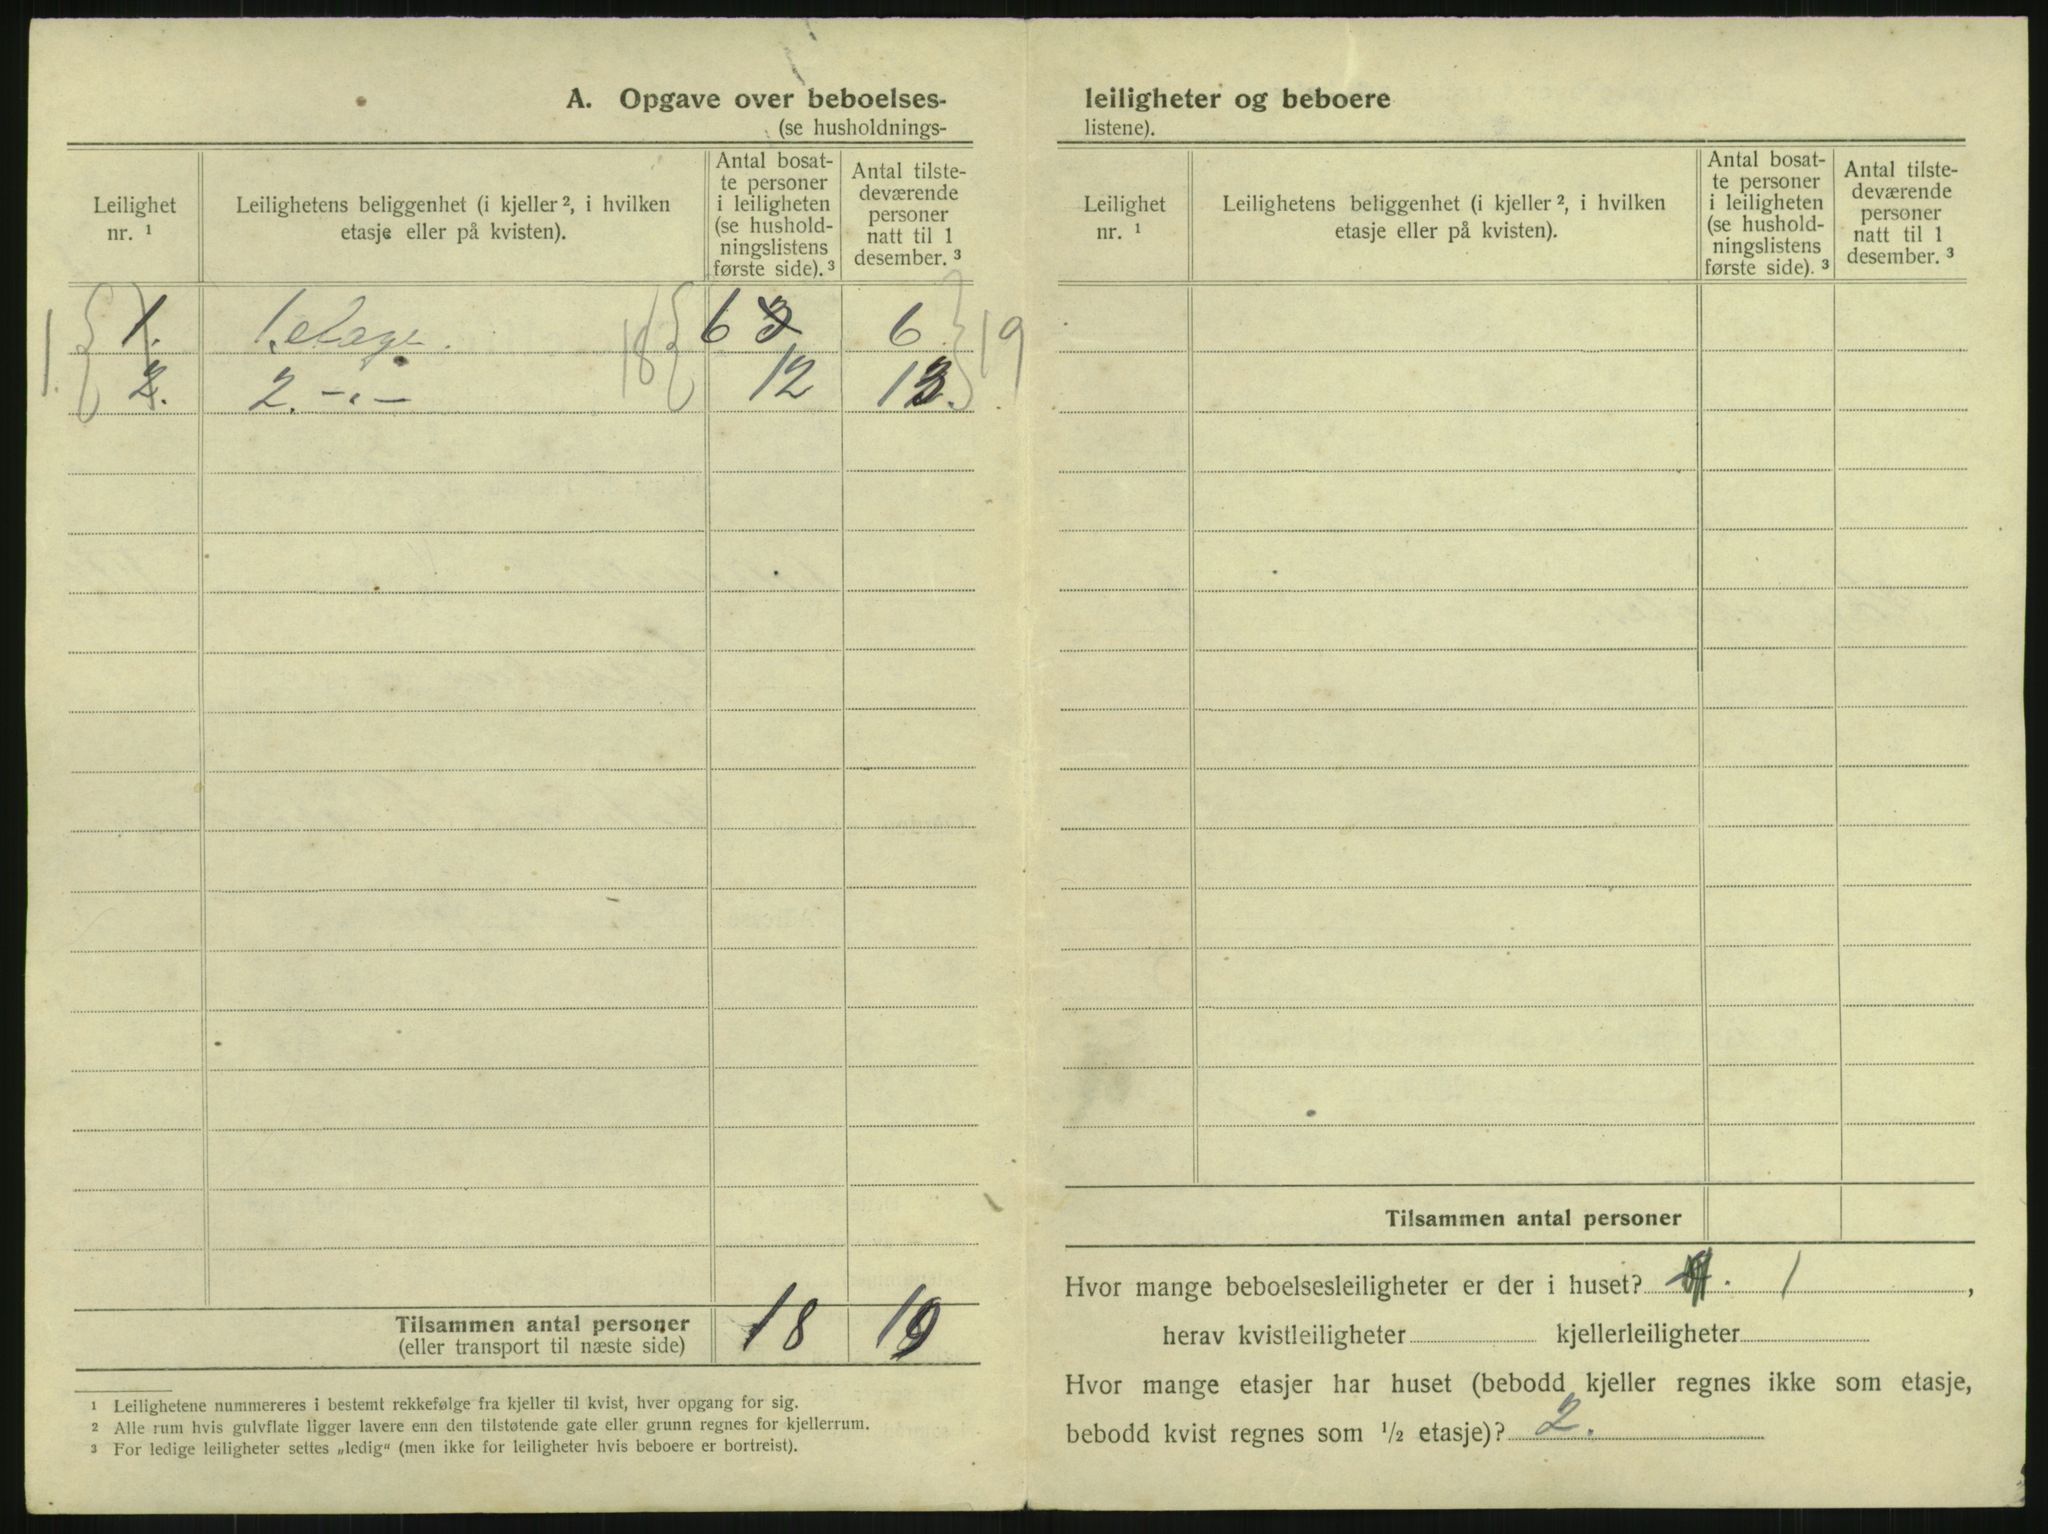 A. Opgave over beboelses-
(se husholdnings-
Leilighet
nr. ¹
Leilighetens beliggenhet (i kjeller ², i hvilken
etasje eller på kvisten).
Antal bosat-
te personer
i leiligheten
(se hushold-
ningslistens
første side). ³
Antal tilste-
deværende
personer
natt til 1
desember. ³
1. { 1. 1. etage. 18 { 6 3 6 } 19
2. 2. -„- 12 13.
Tilsammen antal personer 18 19
(eller transport til næste side)
¹ Leilighetene nummereres i bestemt rekkefølge fra kjeller til kvist, hver opgang for sig.
² Alle rum hvis gulvflate ligger lavere enn den tilstøtende gate eller grunn regnes for kjellerrum.
³ For ledige leiligheter settes „ledig“ (men ikke for leiligheter hvis beboere er bortreist).
leiligheter og beboere
listene).
Leilighet
nr. ¹
Leilighetens beliggenhet (i kjeller ², i hvilken
etasje eller på kvisten).
Antal bosat-
te personer
i leiligheten
(se hushold-
ningslistens
første side). ³
Antal tilste-
deværende
personer
natt til 1
desember. ³
Tilsammen antal personer
Hvor mange beboelsesleiligheter er der i huset? 1,
herav kvistleiligheter kjellerleiligheter
Hvor mange etasjer har huset (bebodd kjeller regnes ikke som etasje,
bebodd kvist regnes som ½ etasje)? 2.